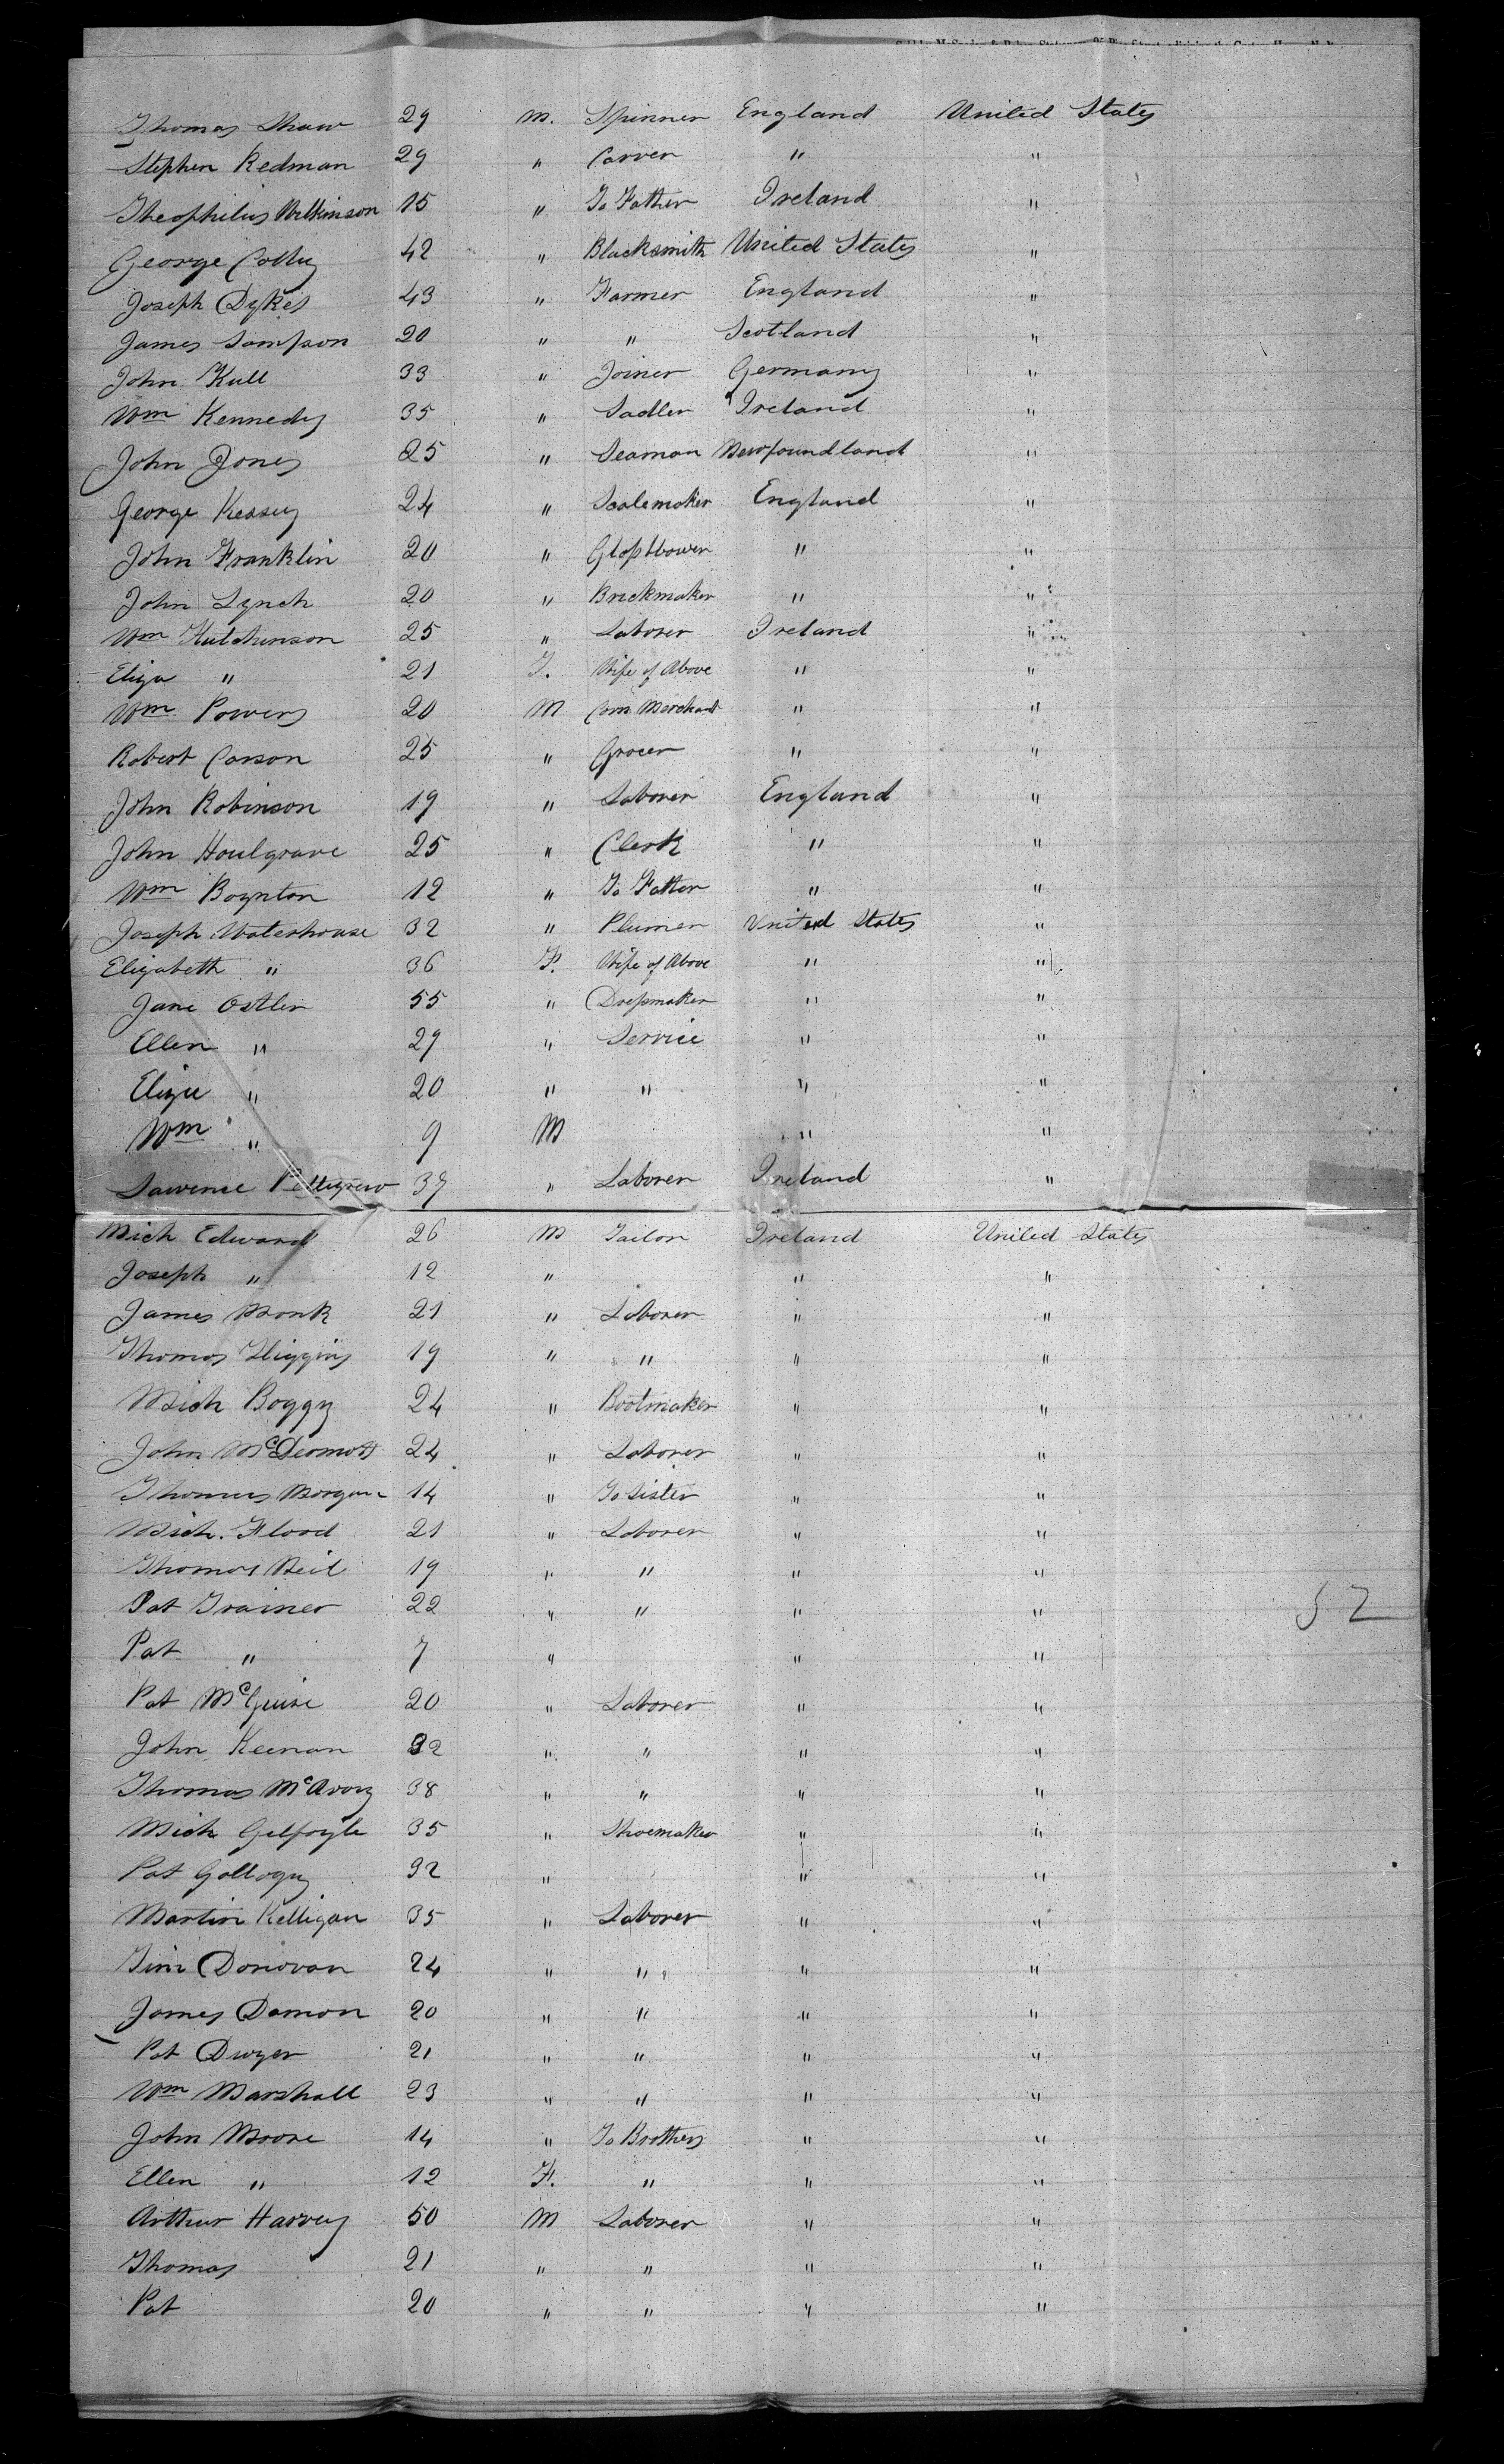 Thomas Shaw 29 M. Spinner England United States
Stephen Redman 29 " Carver " "
Theophilus Wilkinson 15 " To Father Ireland "
George Colley 42 " Blacksmith United States "
Joseph Dykes 43 " Farmer England "
James Sampson 20 " " Scotland "
John Kull 33 " Joiner Germany "
Wm Kennedy 35 " Sadler Ireland "
John Jones 25 " Seaman Newfoundland "
George Kessey 24 " Scalemaker England "
John Franklin 20 " Glassblower " "
John Lynch 20 " Brickmaker " "
Wm Hutchinson 25 " Laborer Ireland "
Eliza " 21 F. Wife of Above " "
Wm Powers 20 M Corn Merchant " "
Robert Carson 25 " Grocer " "
John Robinson 19 " Laborer England "
John Houlgrave 25 " Clerk " "
Wm Boynton 12 " To Father " "
Joseph Waterhouse 32 " Plumer United States "
Elizabeth " 36 F. Wife of Above " "
Jane Ostler 55 " Dressmaker " "
Ellen " 29 " Service " "
Eliza " 20 " " " "
Wm " 9 M " "
Lawrence Pettigrew 37 " Laborer Ireland "
Mich Edward 26 M Tailor Ireland United States
Joseph " 12 " " "
James Monk 21 " Laborer " "
Thomas Higgins 19 " " " "
Mich Boggy 24 " Bootmaker " "
John McDermott 24 " Laborer " "
Thomas Morgan 14 " To Sister " "
Mich. Flood 21 " Laborer " "
Thomas Neil 19 " " " "
Pat Trainer 22 " " " "
Pat " 7 " " "
Pat McGuire 20 " Laborer " "
John Keenan 32 " " " "
Thomas McAvoy 38 " " " "
Mich Gilfoyle 35 " Shoemaker " "
Pat Gallogy 32 " " "
Martin Kelligan 35 " Laborer " "
Tim Donovan 24 " " " "
James Damon 20 " " " "
Pat Dwyer 21 " " " "
Wm Marshall 23 " " " "
John Moore 14 " To Brothers " "
Ellen " 12 F. " " "
Arthur Harvey 50 M Laborer " "
Thomas 21 " " " "
Pat 20 " " " "
52